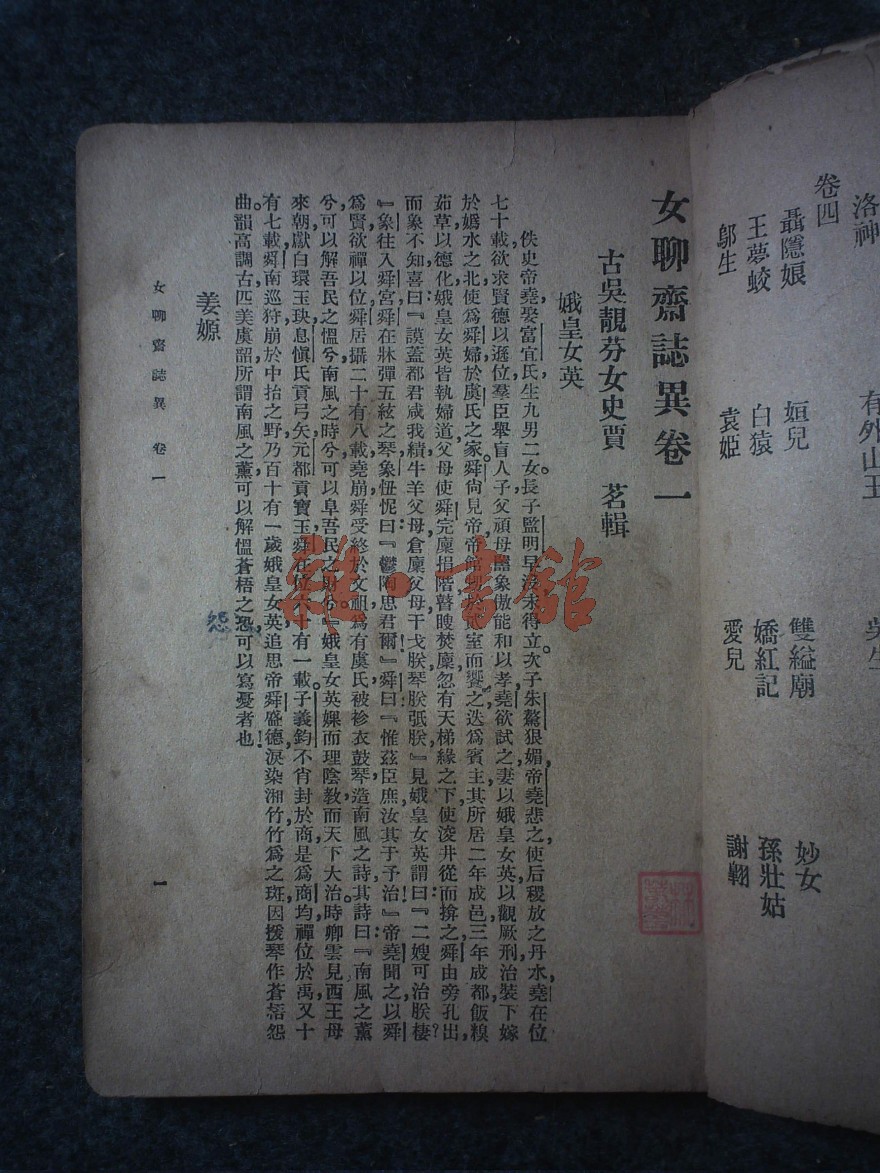 洛神
有外山王
吳生
卷四
聶隱娘
姮兒
雙縊廟
妙女
王夢蛟
白猿
嬌紅記
孫壯姑
鄔生
袁姬
愛兒
謝翱
女聊齋誌異卷一
古吳靚芬女史賈　茗輯
娥皇女英
佚史帝堯娶富宜氏生九男二女長子監明早沒未得立次子朱驁狠媚帝堯悲之使后稷放之丹水堯在位
七十載欲求賢德以遜位羣臣舉盲人子父頑母嚚象傲能和以孝堯欲試之妻以娥皇女英以觀厥刑治裝下嫁
於嬀水之北使爲舜婦於虞氏之家舜尙見帝帝館甥於貳室而饗之迭爲賓主其所居二年成邑三年成都飯糗
茹草以德化娥皇女英皆執婦道父母使舜完廩捐階瞽瞍焚廩忽有天梯緣之下使浚井從而揜之舜由旁孔出
而象不知喜曰『謨蓋都君咸我績牛羊父母倉廩父母干戈朕琴朕弤朕』見娥皇女英謂曰『二嫂可治朕棲
『象往入舜宮舜在牀彈五絃之琴象忸怩曰『鬱陶思君爾』舜曰『惟茲臣庶汝其于予治』帝堯聞之以舜
爲賢欲禪以位舜居攝二十有八載堯崩舜受終於文祖爲有虞氏被袗衣鼓琴造南風之詩其詩曰『南風之薰
兮可以解吾民之慍兮南風之時兮可以阜吾民之財兮』娥皇女英婐而理陰敎而天下大治時卿雲見西王母
來朝獻白環玉玦息愼氏貢弓矢元都貢寶玉舜在位六十有一載子義鈞不肖封於商是爲商均禪位於禹又十
有七載舜南巡狩崩於中抬之野乃百十有一歲娥皇女英追思帝舜盛德淚染湘竹竹爲之斑因援琴作蒼梧怨
曲韻高調古匹美虞韶所謂南風之薰可以解慍蒼梧之恐可以寫憂者也
怨
姜嫄
女聊齋誌異　卷一
一
雜·書館